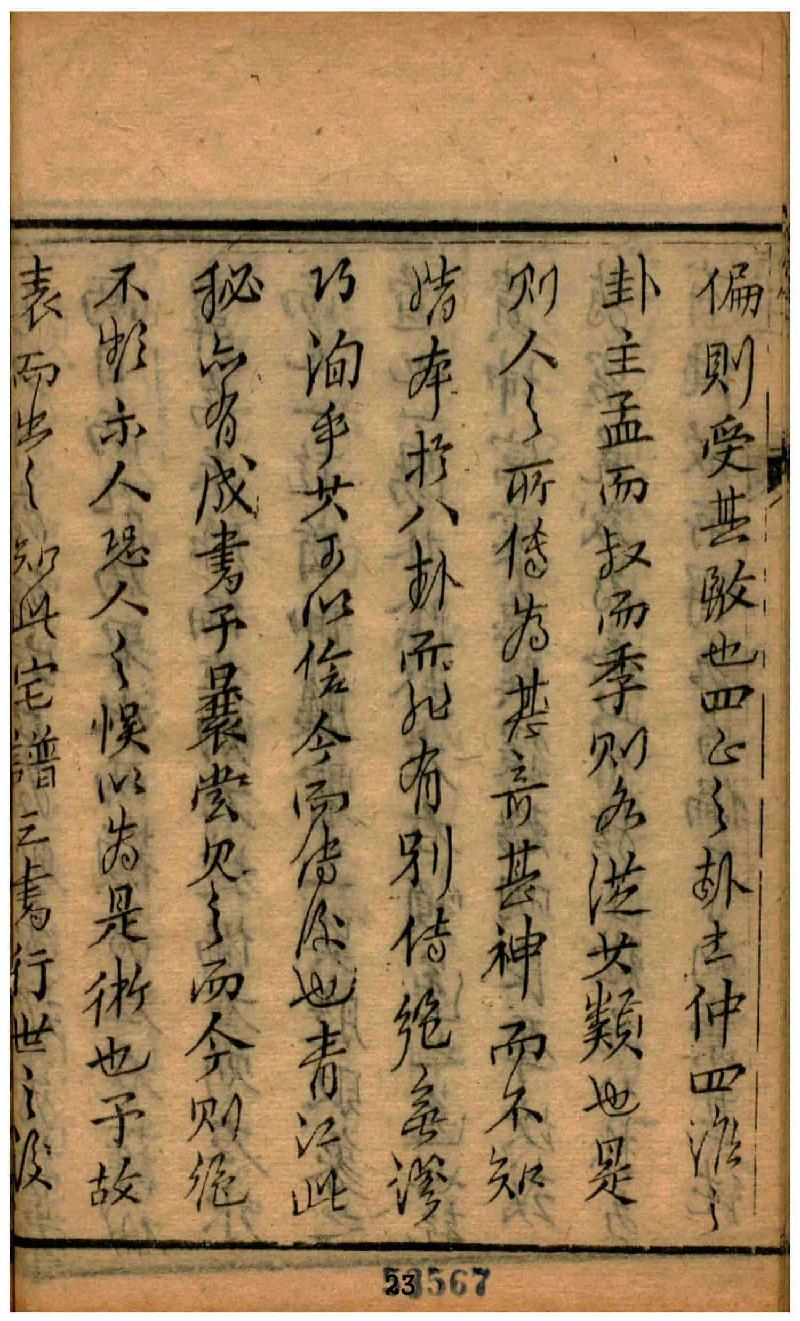 偏則受其敵也四正之卦主仲四維之
卦主孟而叔而季則各從其類也是
則人之所傳為甚奇甚神而不知
皆本於八卦而非有別傳絕無謬
巧洵乎其可以信今而傳後也青江此
秘亦有成書予曩嘗見之而今則絕
不輕示人恐人之悮以為是術也予故
表而出之知此宅譜之書行世之後
23567